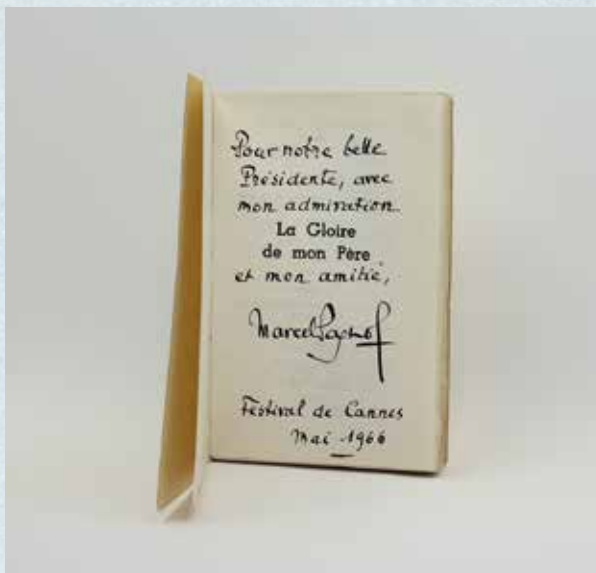 Pour notre belle
Présidente, avec
mon admiration
La Gloire
de mon Père
et mon amitié,
Marcel Pagnol
Festival de Cannes
Mai 1966